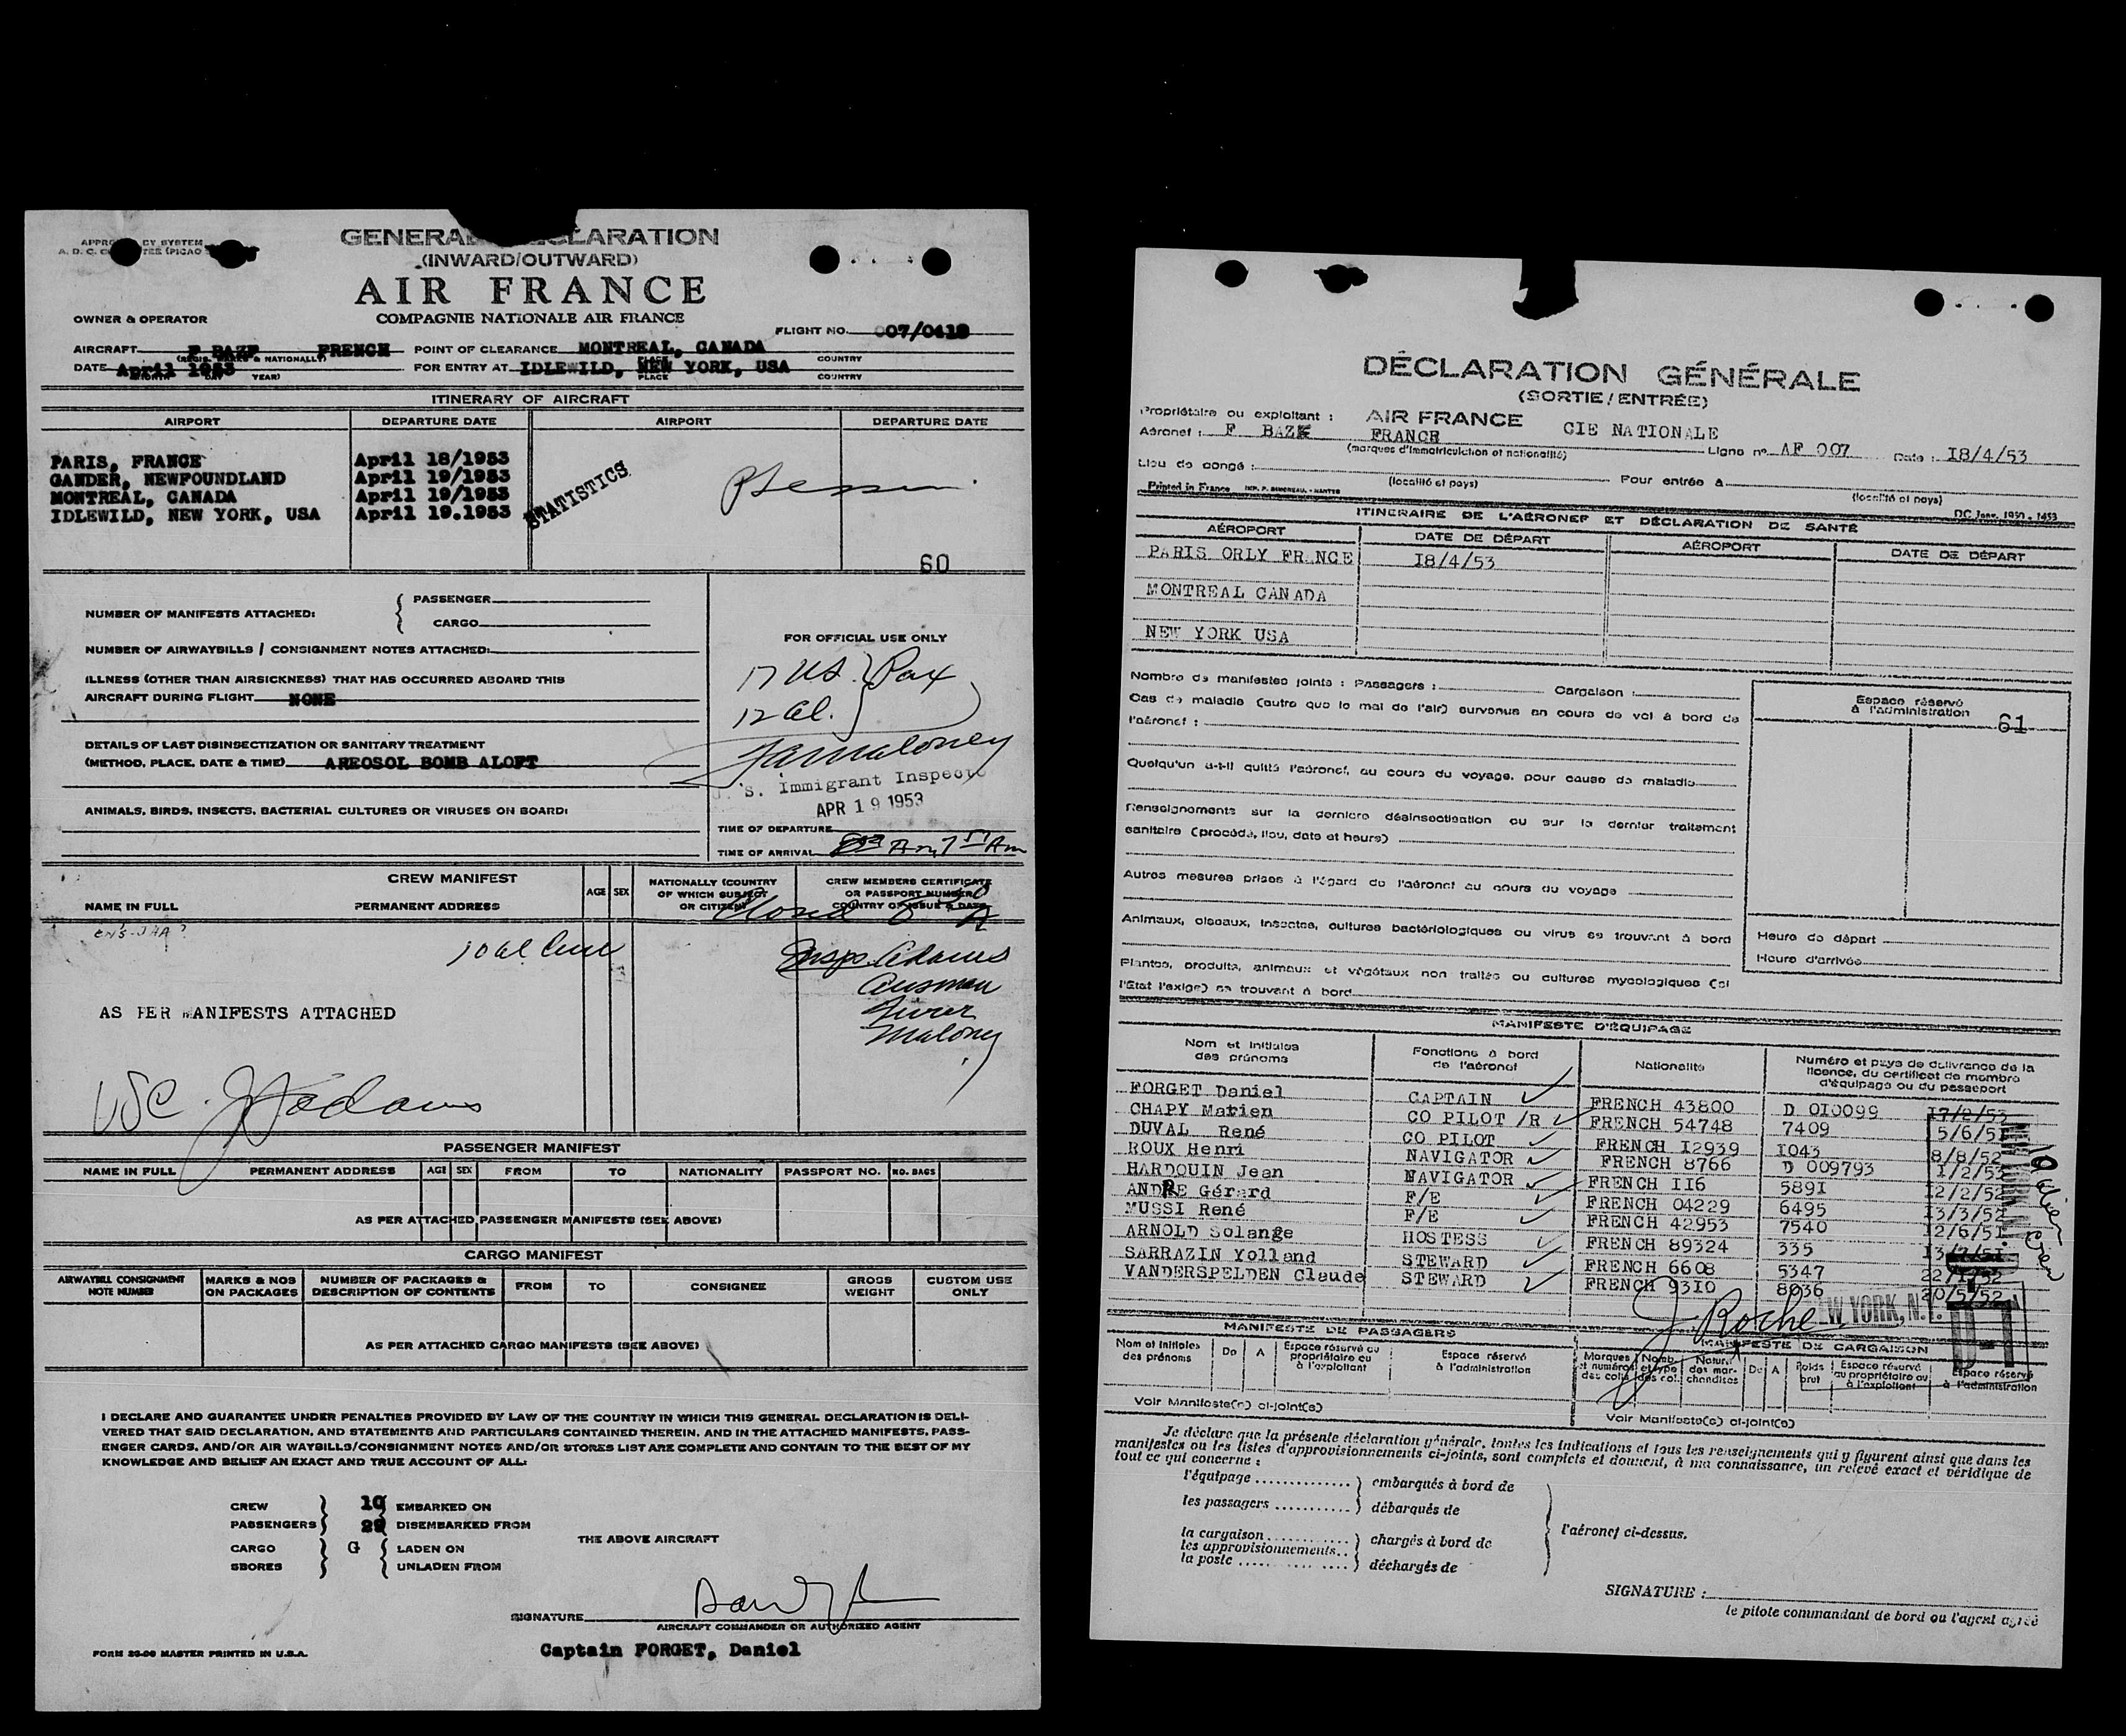 GENERAL DECLARATION
(INWARD/OUTWARD)
AIR FRANCE
COMPAGNIE NATIONALE AIR FRANCE
OWNER & OPERATOR
FLIGHT NO. 007/0418
AIRCRAFT F BAZE FRENCH POINT OF CLEARANCE MONTREAL, CANADA
COUNTRY
DATE April 1953 FOR ENTRY AT IDLEWILD, NEW YORK, USA
YEAR) PLACE COUNTRY
ITINERARY OF AIRCRAFT
AIRPORT DEPARTURE DATE AIRPORT DEPARTURE DATE
PARIS, FRANCE April 18/1953
GANDER, NEWFOUNDLAND April 19/1953
MONTREAL, CANADA April 19/1953
IDLEWILD, NEW YORK, USA April 19.1953
STATISTICS
60
NUMBER OF MANIFESTS ATTACHED: PASSENGER
CARGO
NUMBER OF AIRWAYBILLS / CONSIGNMENT NOTES ATTACHED:
ILLNESS (OTHER THAN AIRSICKNESS) THAT HAS OCCURRED ABOARD THIS
AIRCRAFT DURING FLIGHT NONE
DETAILS OF LAST DISINSECTIZATION OR SANITARY TREATMENT
(METHOD, PLACE, DATE & TIME) AREOSOL BOMB ALOFT
ANIMALS, BIRDS, INSECTS, BACTERIAL CULTURES OR VIRUSES ON BOARD:
FOR OFFICIAL USE ONLY
17 US. } Pax
12 al.
Maloney
U. S. Immigrant Inspector
APR 19 1953
TIME OF DEPARTURE
TIME OF ARRIVAL
CREW MANIFEST
NAME IN FULL PERMANENT ADDRESS AGE SEX NATIONALLY (COUNTRY OF WHICH SUBJECT OR CITIZEN) CREW MEMBERS CERTIFICATE OR PASSPORT NUMBER COUNTRY OF ISSUE & DATE
10 al Crew
Insps. Adams
Maloney
AS PER MANIFESTS ATTACHED
USC. Adams
PASSENGER MANIFEST
NAME IN FULL PERMANENT ADDRESS AGE SEX FROM TO NATIONALITY PASSPORT NO. NO. BAGS
AS PER ATTACHED PASSENGER MANIFESTS (SEE ABOVE)
CARGO MANIFEST
AIRWAYBILL CONSIGNMENT NOTE NUMBER MARKS & NOS ON PACKAGES NUMBER OF PACKAGES & DESCRIPTION OF CONTENTS FROM TO CONSIGNEE GROSS WEIGHT CUSTOM USE ONLY
AS PER ATTACHED CARGO MANIFESTS (SEE ABOVE)
I DECLARE AND GUARANTEE UNDER PENALTIES PROVIDED BY LAW OF THE COUNTRY IN WHICH THIS GENERAL DECLARATION IS DELI-
VERED THAT SAID DECLARATION, AND STATEMENTS AND PARTICULARS CONTAINED THEREIN, AND IN THE ATTACHED MANIFESTS, PASS-
ENGER CARDS, AND/OR AIR WAYBILLS/CONSIGNMENT NOTES AND/OR STORES LIST ARE COMPLETE AND CONTAIN TO THE BEST OF MY
KNOWLEDGE AND BELIEF AN EXACT AND TRUE ACCOUNT OF ALL:
CREW 10 EMBARKED ON
PASSENGERS 29 DISEMBARKED FROM
THE ABOVE AIRCRAFT
CARGO G LADEN ON
SBORES UNLADEN FROM
SIGNATURE
AIRCRAFT COMMANDER OR AUTHORIZED AGENT
Captain FORGET, Daniel
FORM 26-00 MASTER PRINTED IN U.S.A.
DÉCLARATION GÉNÉRALE
(SORTIE/ENTRÉE)
Propriétaire ou exploitant : AIR FRANCE CIE NATIONALE
Aéronef : F BAZE FRANCE Ligne n° AF 007 Date : I8/4/53
(marques d'immatriculation et nationalité)
Lieu de congé : Pour entrée à
(localité et pays) (localité et pays)
Printed in France DC Janv. 1950 - 1453
ITINÉRAIRE DE L'AÉRONEF ET DÉCLARATION DE SANTÉ
AÉROPORT DATE DE DÉPART AÉROPORT DATE DE DÉPART
PARIS ORLY FRANCE I8/4/53
MONTREAL CANADA
NEW YORK USA
Nombre de manifestes joints : Passagers : Cargaison :
Cas de maladie (autre que le mal de l'air) survenus en cours de vol à bord de
l'aéronef :
Quelqu'un a-t-il quitté l'aéronef, au cours du voyage, pour cause de maladie
Renseignements sur la dernière désinsectisation ou sur le dernier traitement
sanitaire (procédé, lieu, date et heure)
Autres mesures prises à l'égard de l'aéronef au cours du voyage
Animaux, oiseaux, insectes, cultures bactériologiques ou virus se trouvant à bord
Plantes, produits, animaux et végétaux non traités ou cultures mycologiques (si
l'État l'exige) se trouvant à bord
Espace réservé
à l'administration 61
Heure de départ
Heure d'arrivée
MANIFESTE D'ÉQUIPAGE
Nom et initiales des prénoms Fonctions à bord de l'aéronef Nationalité Numéro et pays de délivrance de la licence, du certificat de membre d'équipage ou du passeport
FORGET Daniel CAPTAIN FRENCH 43800 D 0I0099 17/2/53
CHAPY Marien CO PILOT /R FRENCH 54748 7409 5/6/51
DUVAL René CO PILOT FRENCH I2939 I043 8/8/52
ROUX Henri NAVIGATOR FRENCH 8766 D 009793 1/2/53
HARDOUIN Jean NAVIGATOR FRENCH II6 589I 12/2/52
ANDRE Gérard F/E FRENCH 04229 6495 13/3/52
MUSSI René F/E FRENCH 42953 7540 12/6/51
ARNOLD Solange HOSTESS FRENCH 89324 335
SARRAZIN Yolland STEWARD FRENCH 6608 5347
VANDERSPELDEN Claude STEWARD FRENCH 93I0 8036 20/5/52
10 alien crew
J. Roche
NEW YORK, N.Y.
D-1
MANIFESTE DE PASSAGERS MANIFESTE DE CARGAISON
Nom et initiales des prénoms De A Espace réservé au propriétaire ou à l'exploitant Espace réservé à l'administration Marques et numéros des colis Nomb. et type des col. Nature des marchandises De A Poids brut Espace réservé au propriétaire ou à l'exploitant Espace réservé à l'administration
Voir Manifeste(s) ci-joint(s) Voir Manifeste(s) ci-joint(s)
Je déclare que la présente déclaration générale, toutes les indications et tous les renseignements qui y figurent ainsi que dans les
manifestes ou les listes d'approvisionnements ci-joints, sont complets et donnent, à ma connaissance, un relevé exact et véridique de
tout ce qui concerne :
l'équipage ............. embarqués à bord de
les passagers ........... débarqués de
l'aéronef ci-dessus.
la cargaison ............ chargés à bord de
les approvisionnements..
la poste ................ déchargés de
SIGNATURE :
le pilote commandant de bord ou l'agent agréé